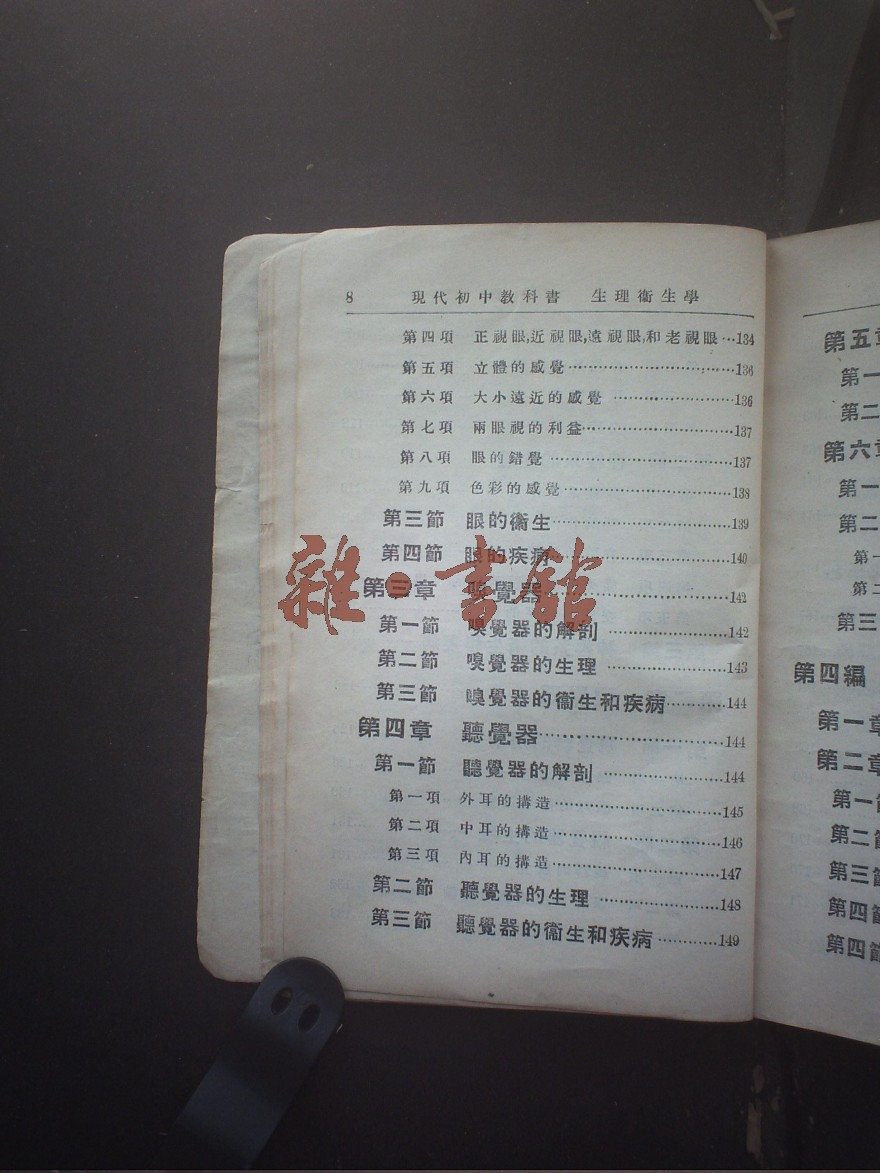 8 現代初中教科書 生理衞生學
第四項 正視眼,近視眼,遠視眼,和老視眼…134
第五項 立體的感覺……………………………136
第六項 大小遠近的感覺……………………136
第七項 兩眼視的利益…………………………137
第八項 眼的錯覺………………………………137
第九項 色彩的感覺……………………………138
第三節 眼的衞生………………………………139
第四節 眼的疾病………………………………140
第三章 嗅覺器…………………………………142
第一節 嗅覺器的解剖…………………………142
第二節 嗅覺器的生理…………………………143
第三節 嗅覺器的衞生和疾病…………144
第四章 聽覺器…………………………………144
第一節 聽覺器的解剖…………………………144
第一項 外耳的構造……………………………145
第二項 中耳的構造……………………………146
第三項 內耳的構造……………………………147
第二節 聽覺器的生理…………………………148
第三節 聽覺器的衞生和疾病…………149
雜·書館
第五章
第一
第二
第六章
第一
第二
第一
第二
第三
第四編
第一章
第二章
第一節
第二節
第三節
第四節
第四節